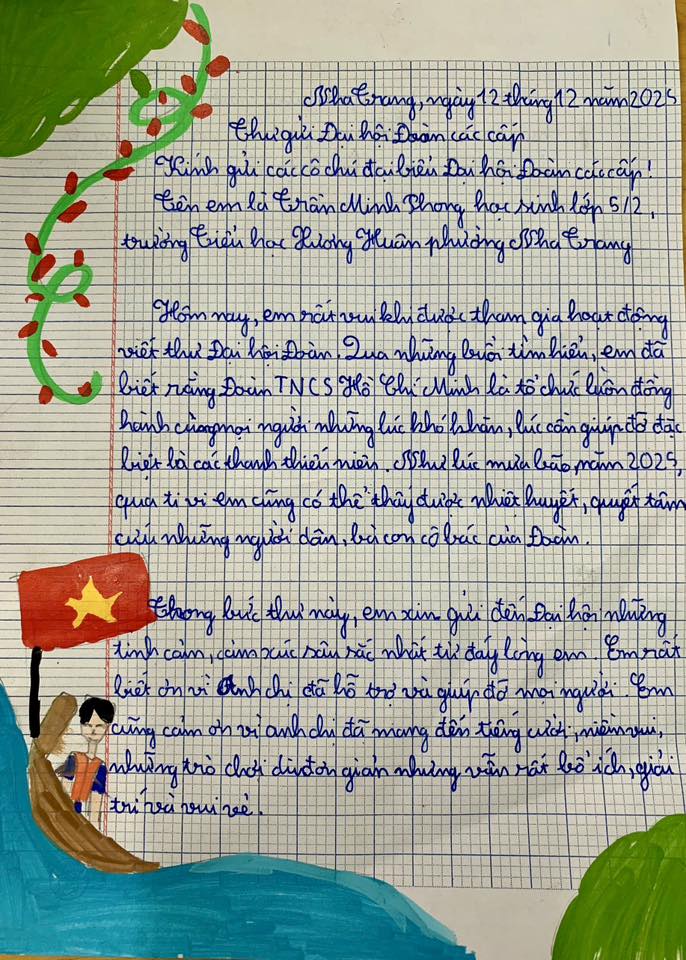 Nha Trang, ngày 12 tháng 12 năm 2025
Thư gửi Đại hội Đoàn các cấp
Kính gửi các cô chú đại biểu Đại hội Đoàn các cấp!
Tên em là Trần Minh Phong học sinh lớp 5/2,
trường Tiểu học Xương Huân phường Nha Trang
Hôm nay, em rất vui khi được tham gia hoạt động
viết thư Đại hội Đoàn. Qua những buổi tìm hiểu, em đã
biết rằng Đoàn TNCS Hồ Chí Minh là tổ chức luôn đồng
hành cùng mọi người những lúc khó khăn, lúc cần giúp đỡ đặc
biệt là các thanh thiếu niên. Như lúc mưa bão, năm 2025,
qua ti vi em cũng có thể thấy được nhiệt huyết, quyết tâm
cứu những người dân, bà con cô bác của Đoàn.
Trong bức thư này, em xin gửi đến Đại hội những
tình cảm, cảm xúc sâu sắc nhất từ đáy lòng em. Em rất
biết ơn vì Anh chị đã hỗ trợ và giúp đỡ mọi người. Em
cũng cảm ơn vì anh chị đã mang đến tiếng cười, niềm vui,
những trò chơi dù đơn giản nhưng vẫn rất bổ ích, giải
trí và vui vẻ.